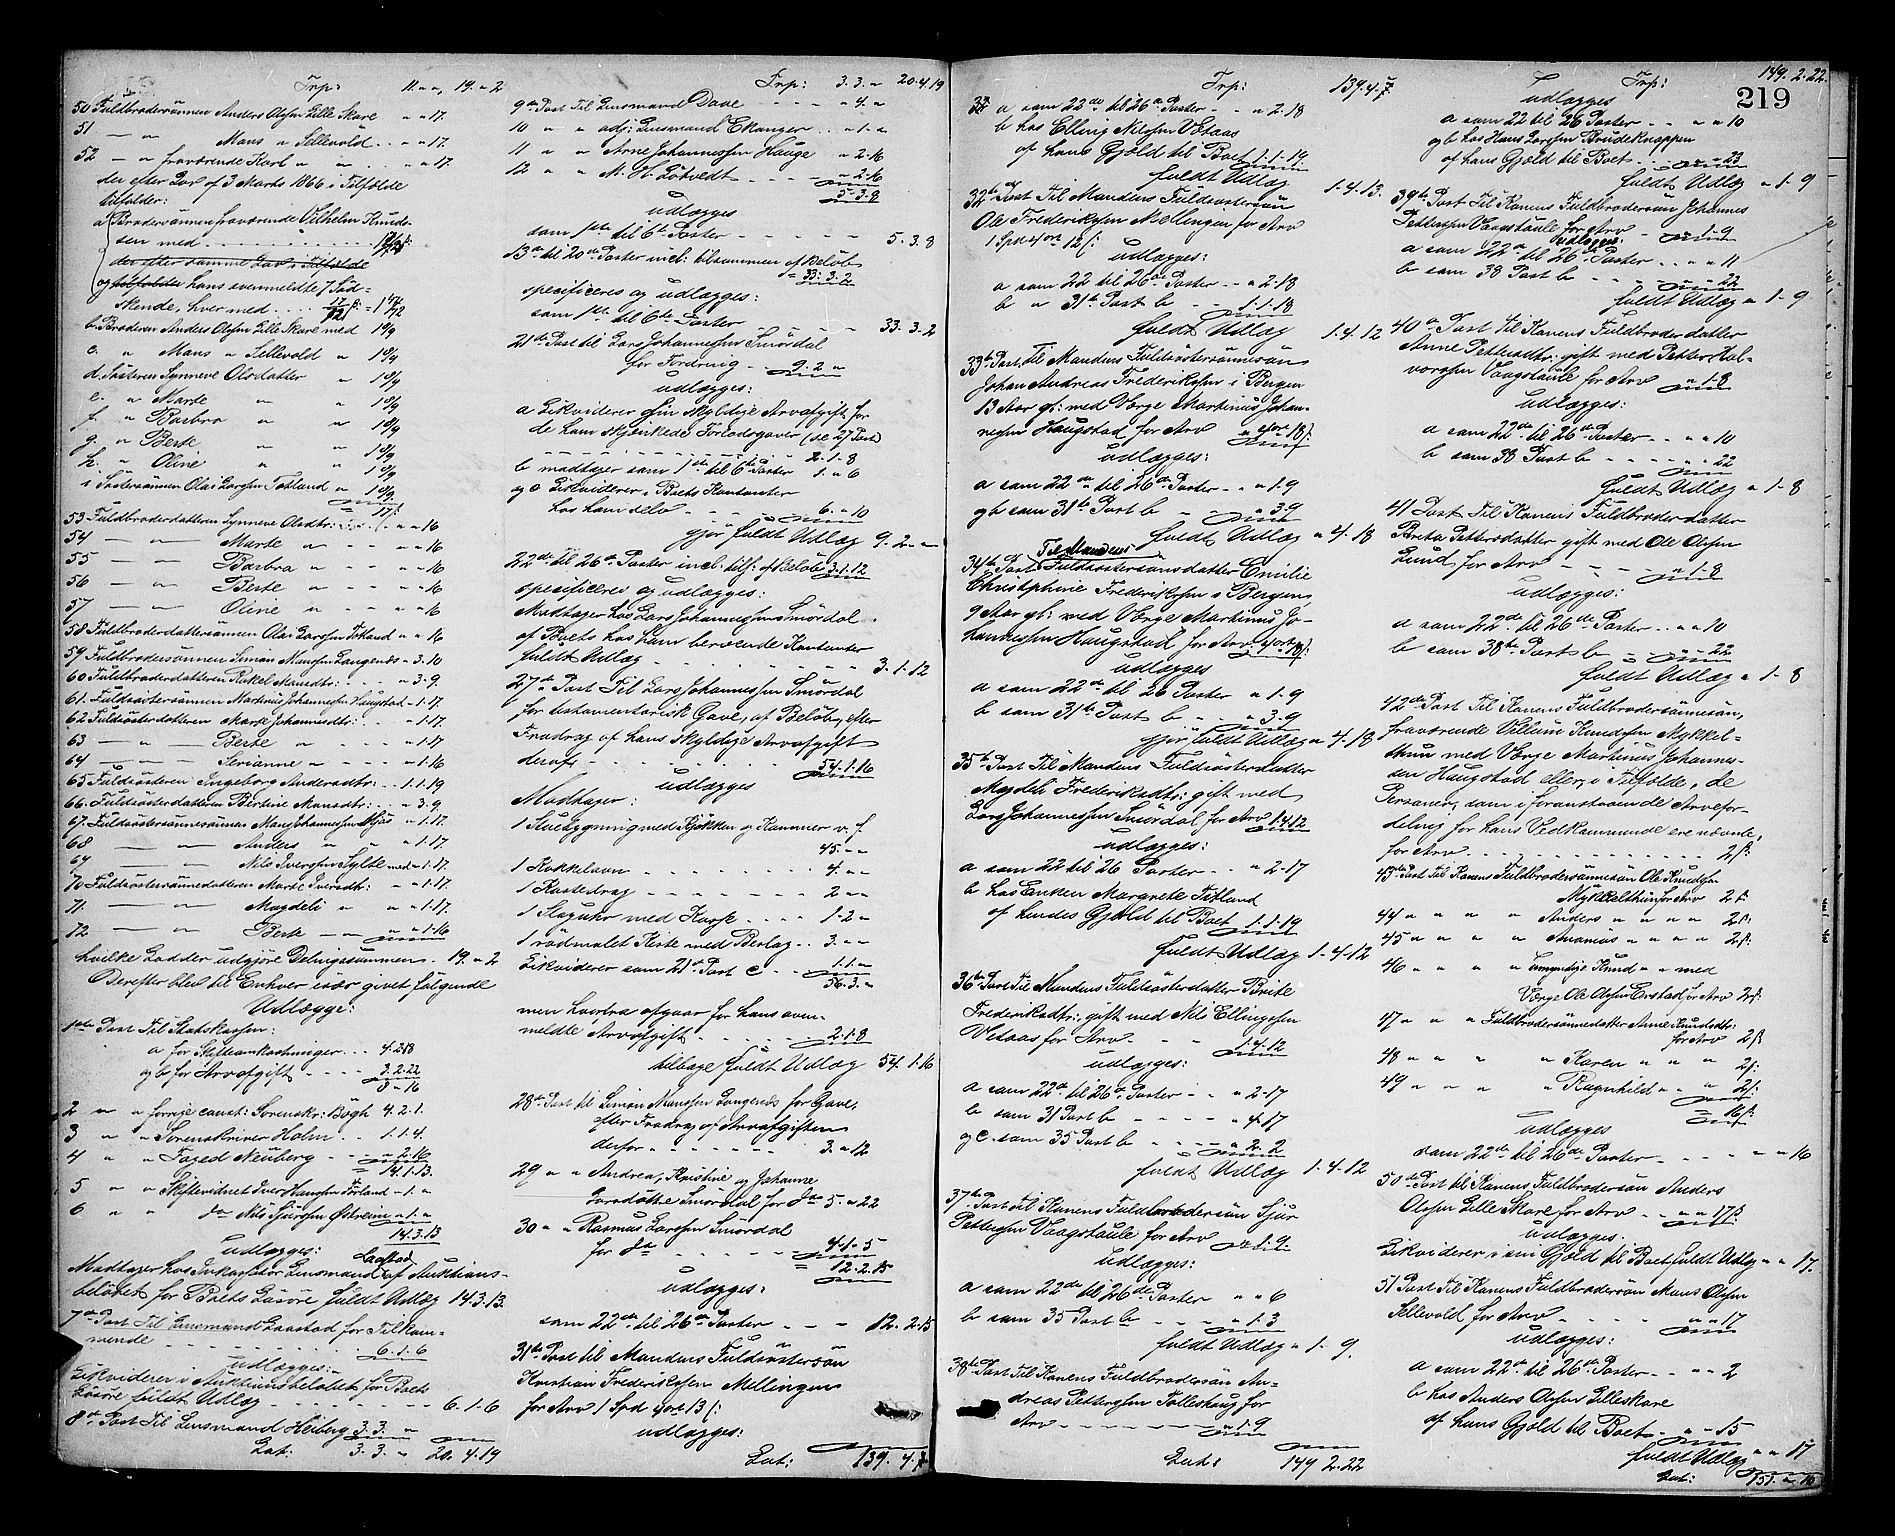 Trp: 11 „ „ 19 „ 2
50 Fuldbrodersönnen Anders Olsen Lille Skare „ „ 17.
51 — „ Mons „ Sellevold . . „ „ 17.
52 — „ fraværende Karl „ „ „ „ 17
der efter Lov af 3 Marts 1866 i Tilfælde
tilfalder:
a Brodersönnen fraværende Vilhelm Knud-
sen med
der efter samme Lov i Tilfælde
og tilfalder hans ovenmeldte 7 Sød-
skende, hver med
b. Broderen Anders Olsen Lille Skare med 1 9/9
c. „ Mons „ Sellevold „ 1 8/9
d. Søsteren Synneve Olsdatter „ 1 8/9
e. „ Marte „ „ 1 8/9
f. „ Barbra „ „ 1 8/9
g. „ Berte „ „ 1 8/9
h. „ Oline „ „ 1 8/9
i Søstersönnen Ola Larsen Totland „ 1 8/9
17 ß
53 Fuldbroderdatteren Synneve Olsdtr: „ „ 16
54 — „ — Marte „ „ „ 16
55 — „ — Barbra „ „ „ 16
56 — „ — Berte „ „ „ 16
57 — „ — Oline „ „ „ 16
58 Fuldbroderdattersönnen Ola Larsen Totland „ „ 16
59 Fuldbrodersönnen Simon Monsen Langenæs „ 3.10
60 Fuldbroderdatteren Rakel Monsdtr: „ 3.9.
61. Fuldsöstersönnen Martinus Johannesen Haugstad „ 1.17.
62 Fuldsösterdatteren Marte Johannesdtr: „ 1.17.
63 — „ — Berte „ „ 1.17
64 — „ — Serianne „ „ 1.16
65 Fuldsösteren Ingeborg Andersdtr: . 1.1.19
66. Fuldsösterdatteren Berthine Monsdtr: . „ 3.9.
67. Fuldsöstersönnesönnen Mons Johannessen Mjøs „ 1.17.
68 — „ — Anders „ „ „ 1.17.
69 — „ — Nils Iversen Sylte med „ 1.17.
70 Fuldsöstersönnedatteren Marte Iversdtr: „ „ 1.17.
71. — „ — Magdeli „ „ „ 1.17.
72 — „ — Berte — „ „ 1.16
hvilke Lodder udgjøre Delingssummen . 19. „ 2
Derefter blev til Enhver især givet følgende
Udlægge:
1ste Post Til Statskassen:
a for Skifteomkostninger . . . 4.2.18
og b for Arvafgift . . . . 3.2.22
8 „ 16
2 „ „ forrige const: Sorenskr: Bøgh 4.2.1.
3 „ „ Sorenskriver Holm . . 1.1.4.
4 „ „ Foged Neuberg „ 2.16
14.1.13.
5 „ „ Skiftevidnet Iver Hansen Førland „ 1. „
6 „ „ do Nils Sjursen Østreim „ 1. „
14.3.13
udlægges:
Modtager hos Inkassator Lensmand Laastad af Auktions-
beløbet for Boets Løsøre fuldt Udlæg 14.3.13.
7de Post Til Lensmand Laastad for Tilkom-
mende 6.1.6
udlægges:
Likviderer i Auktionsbeløbet for Boets
Løsøre fuldt Udlæg . . . 6.1.6
8de Post Til Lensmand Heiberg 3.3. „
Lat: 3.3. „ 20.4.19
Trp: 3.3. „ 20.4.19
9de Post Til Lensmand Dave . . . „ 4. „
10 „ „ adj: Lensmand Ekanger . . „ 1. „
11 „ „ Arne Johannessen Hauge „ 2.16
12 „ „ N. H. Løtvedt . . . „ 2.16
5.3.8
udlægges
som 1ste til 6te Poster — — 5.3.8
13de til 20de Poster incl: tilsammen af Beløb
33.3.2
specificeres og udlægges:
som 1ste til 6te Poster — 33.3.2
21de Post til Lars Johannessen Smørdal
for Fordring . 9.2 „
udlægges:
a Likviderer sin skyldige Arvafgift for
de ham skjænkede Forlodsgaver (se 27 Post)
2.1.8
b modtager som 1ste til 6te Poster 1. „ 6
og c Likviderer i Boets Kontanter
hos ham selv 6. „ 10
gjør fuldt Udlæg 9.2. „
22de til 26de Poster incl. tils: af Beløb 3.1.12
specificeres og udlægges:
Modtager hos Lars Johannessen Smørdal
af Boets hos ham beroende Kontanter
fuldt Udlæg . . . 3.1.12
27de Post Til Lars Johannessen Smørdal
for testamentarisk Gave, af Beløb, efter
Fradrag af hans skyldige Arvafgift
deraf . . . 54.1.16
udlægges
Modtager:
1 Stuebygning med Kjøkken og Kammer v. f.
45. „ „
1 Kakkelovn . . . 4. „ „
1 . . . 2 „ „
1 Slaguhr med Kasse . . . 1.2 „
1 rødmalet Kiste med Beslag . . 3. „ „
Likviderer som 21de Post c . . 1.1. „
56.3. „
men hvorfra afgaar for hans oven-
meldte Arvafgift . . . 2.1.8
tilbage fuldt Udlæg 54.1.16
28de Post til Simon Monsen Langenæs for Gave,
efter Fradrag af Arvafgiften
derfor . . . 3. „ 12
29 „ „ Andrea, Kristine og Johanne
Larsdøttre Smørdal for do 5. „ 22
30 „ „ Rasmus Larsen Smørdal
for do . . . 4.1.5
12.2.15
udlægges:
som 22de til 26de Poster . . . 12.2.15
31te Post til Mandens Fuldsöstersön
Kristian Frederiksen Mellingen
for Arv 1 Spd 4 ort 13 ß.
udlægges:
Lat: 139.4.7
Trp: 139.4.7
a som 22de til 26de Poster . . „ 2.18
b hos Elling Nilsen Vetaas
af hans Gjæld til Boet 1.1.19
fuldt Udlæg 1.4.13.
32te Post Til Mandens Fuldsöstersön
Ole Frederiksen Mellingen for Arv
1 Spd 4 ort 12 ß.
udlægges:
a som 22 til 26de Poster . . „ 2.18
b „ 31te Post b . . 1.1.18
fuldt Udlæg 1.4.12
33te Post Til Mandens Fuldsöstersönnesön
Johan Andreas Frederiksen i Bergen
13 Aar gl: med Værge Martinus Johan-
nesen Haugstad for Arv 4 ort 18 ß.
udlægges:
a som 22de til 26de Poster . . „ 1.9
og b som 31te Post b . . „ 3.9
fuldt Udlæg „ 4.18
34te Post Til Mandens Fuldsöstersönsdatter Emilie
Christphine Frederiksen i Bergen,
9 Aar gl: med Værge Martinus Jo-
hannesen Haugstad for Arv 4 ort 18 ß.
udlægges
a som 22de til 26 Poster „ 1.9
b som 31te Post b . . „ 3.9
gjør fuldt Udlæg „ 4.18
35te Post Til Mandens Fuldsösterdatter
Magdeli Frederiksdtr: gift med
Lars Johannessen Smørdal for Arv 1.4.12
udlægges:
a som 22 til 26 Poster . . . „ 2.17
b hos Enken Margrete Titland
af hendes Gjæld til Boet 1.1.19
fuldt Udlæg 1.4.12
36te Post Til Mandens Fuldsösterdatter Brite
Frederiksdtr:, gift med Nils Ellingsen
Vetaas for Arv . . . 1.4.12
udlægges:
a som 22de til 26de Poster . . „ 2.17
b som 31 Post b . . . „ 4.17
og c som 35 Post b . . . „ 2.2
fuldt Udlæg 1.4.12
37te Post Til Konens Fuldbrodersön Sjur
Pettersen Vaagstaule for Arv „ 1.9.
udlægges:
a som 22de til 26de Poster „ „ 6
b som 35 Post b . . . „ 1.3
fuldt Udlæg „ 1.9.
38te Post Til Konens Fuldbrodersön An-
dreas Pettersen Tolleshaug for
Arv . . . „ 1.9
Lat: 149 2.22
Trp: 149.2.22.
219
udlægges
a som 22 til 26 Poster . . „ „ 10
og b hos Hans Larsen Brudeknappen
af hans Gjæld til Boet . . „ „ 23
fuldt Udlæg „ 1.9
39te Post Til Konens Fuldbrodersön Johannes
Pettersen Vaagstaule for Arv „ 1.9
udlægges:
a som 22de til 26de Poster . . „ „ 11
b som 38 Post b . . . „ „ 22
fuldt Udlæg „ 1.9
40de Post Til Konens Fuldbroderdatter
Anne Pettersdtr: gift med Petter Hal-
vorsen Vaagstaule for Arv „ 1.8
udlægges:
a som 22de til 26de Poster . . „ „ 10
b som 38 Post b . . . „ „ 22
fuldt Udlæg „ 1.8
41 Post Til Konens Fuldbroderdatter
Brita Pettersdatter gift med Ole Olsen
Lund for Arv . . . „ 1.8
udlægges:
a som 22de til 26de Poster . . „ „ 10
b som 38te Post b . . „ „ 22
fuldt Udlæg „ 1.8
42de Post Til Konens Fuldbrodersönnesön,
fraværende Villum Knudsen Mykkel-
thun med Værge Martinus Johannes-
sen Haugstad eller, i Tilfælde, de
Personer, som i foranstaaende Arvefor-
deling for hans Vedkommende ere nævnte,
for Arv . . . 2 ß.
43de Post Til Konens Fuldbrodersönnesön Ole Knudsen
Mykkelthun for Arv 2 ß
44 „ „ „ „ Anders „ „ „ „ 2 ß.
45 „ „ „ „ Ananias „ „ „ „ 2 ß.
46 „ „ „ „ umyndige Knud „ „ med
Værge Ole Olsen Eirstad for Arv 2 ß.
47 „ „ „ Fuldbrodersönnedatter Anne Knudsdtr:
for Arv 2 ß
48 „ „ „ „ Karen „ „ „ 2 ß.
49 „ „ „ „ Ragnhild „ „ „ 2 ß.
16 ß.
udlægges
som 22de til 26de Poster . . . „ „ 16
50de Post til Konens Fuldbrodersön Anders
Olsen Lille Skare for Arv . . „ „ 17 ß.
udlægges.
Likviderer i sin Gjæld til Boet fuldt Udlæg „ „ 17.
51 Post Til Konens Fuldbrodersön Mons Olsen
Sellevold for Arv . . . „ „ 17
udlægges:
a som 22de til 26de Poster . . „ „ 2
b hos Anders Olsen Lilleskare
af hans Gjæld til Boet . . „ „ 15
fuldt Udlæg „ „ 17
Lat: 151. „ 16